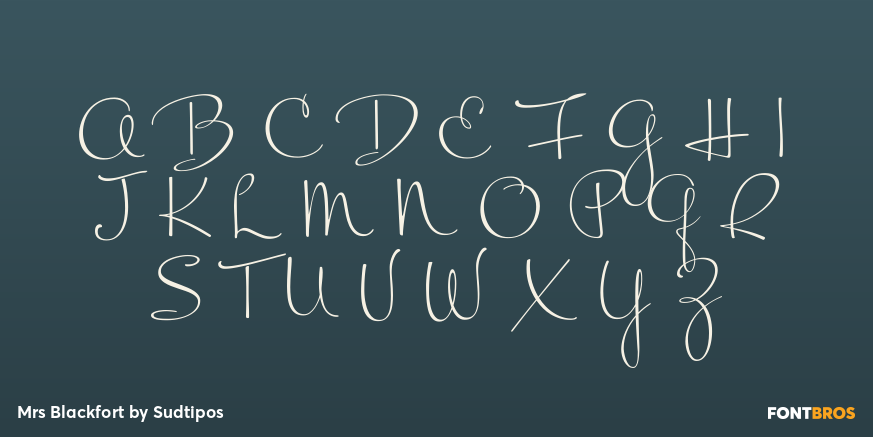 A B C D E F G H I
J K L M N O P Q R
S T U V W X Y Z
Mrs Blackfort by Sudtipos
FONTBROS